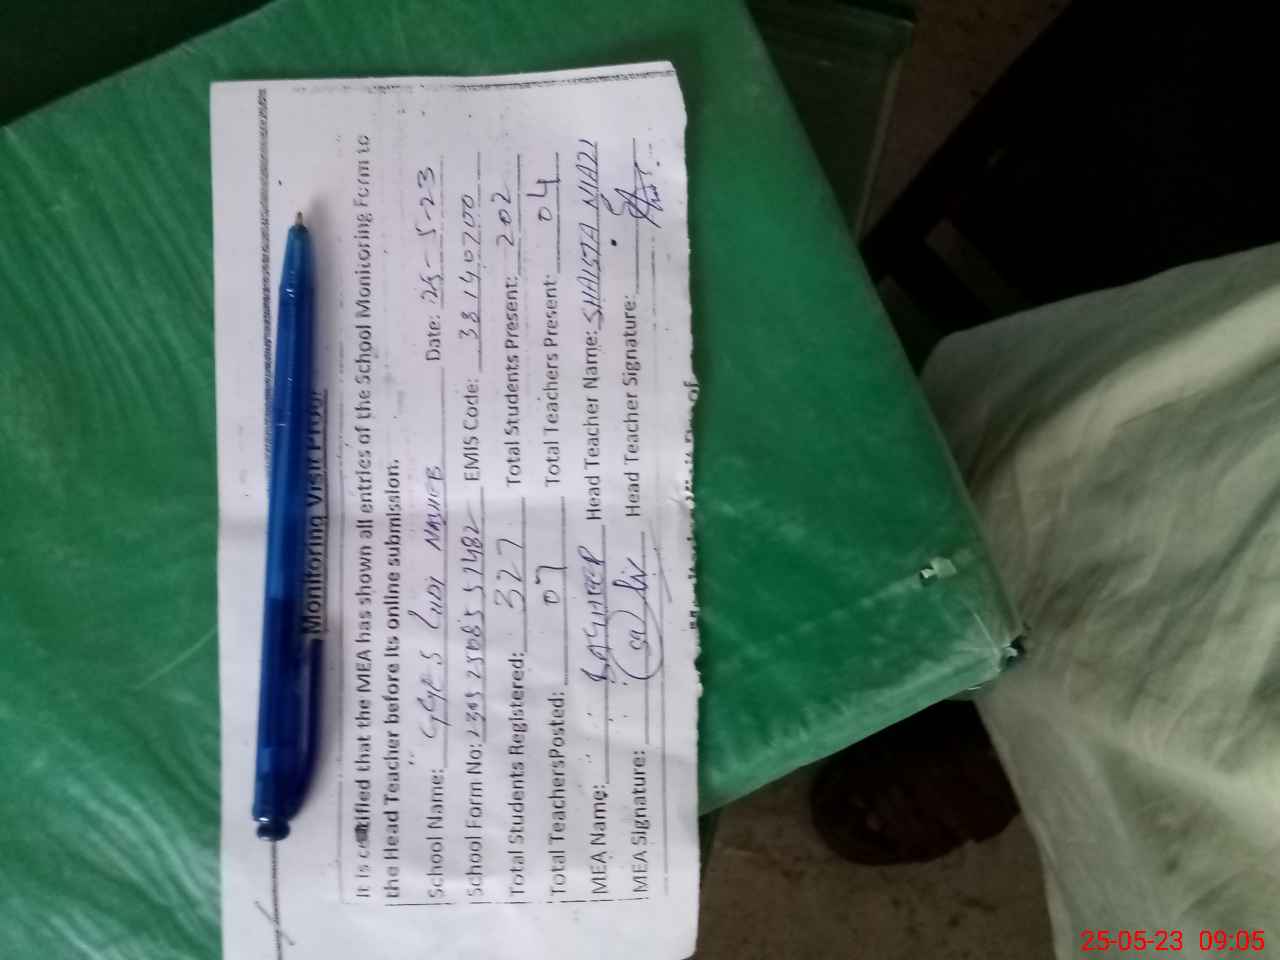 Monitoring Visit Proof
It is certified that the MEA has shown all entries of the School Monitoring Form to
the Head Teacher before its online submission.
School Name: GGPS Date: 25-5-23
School Form No: EMIS Code: 38140200
Total Students Registered: 327 Total Students Present: 202
Total TeachersPosted: 07 Total Teachers Present: 04
MEA Name: Head Teacher Name: SHAISTA NIAZI
MEA Signature: Head Teacher Signature:
of
25-05-23 09:05